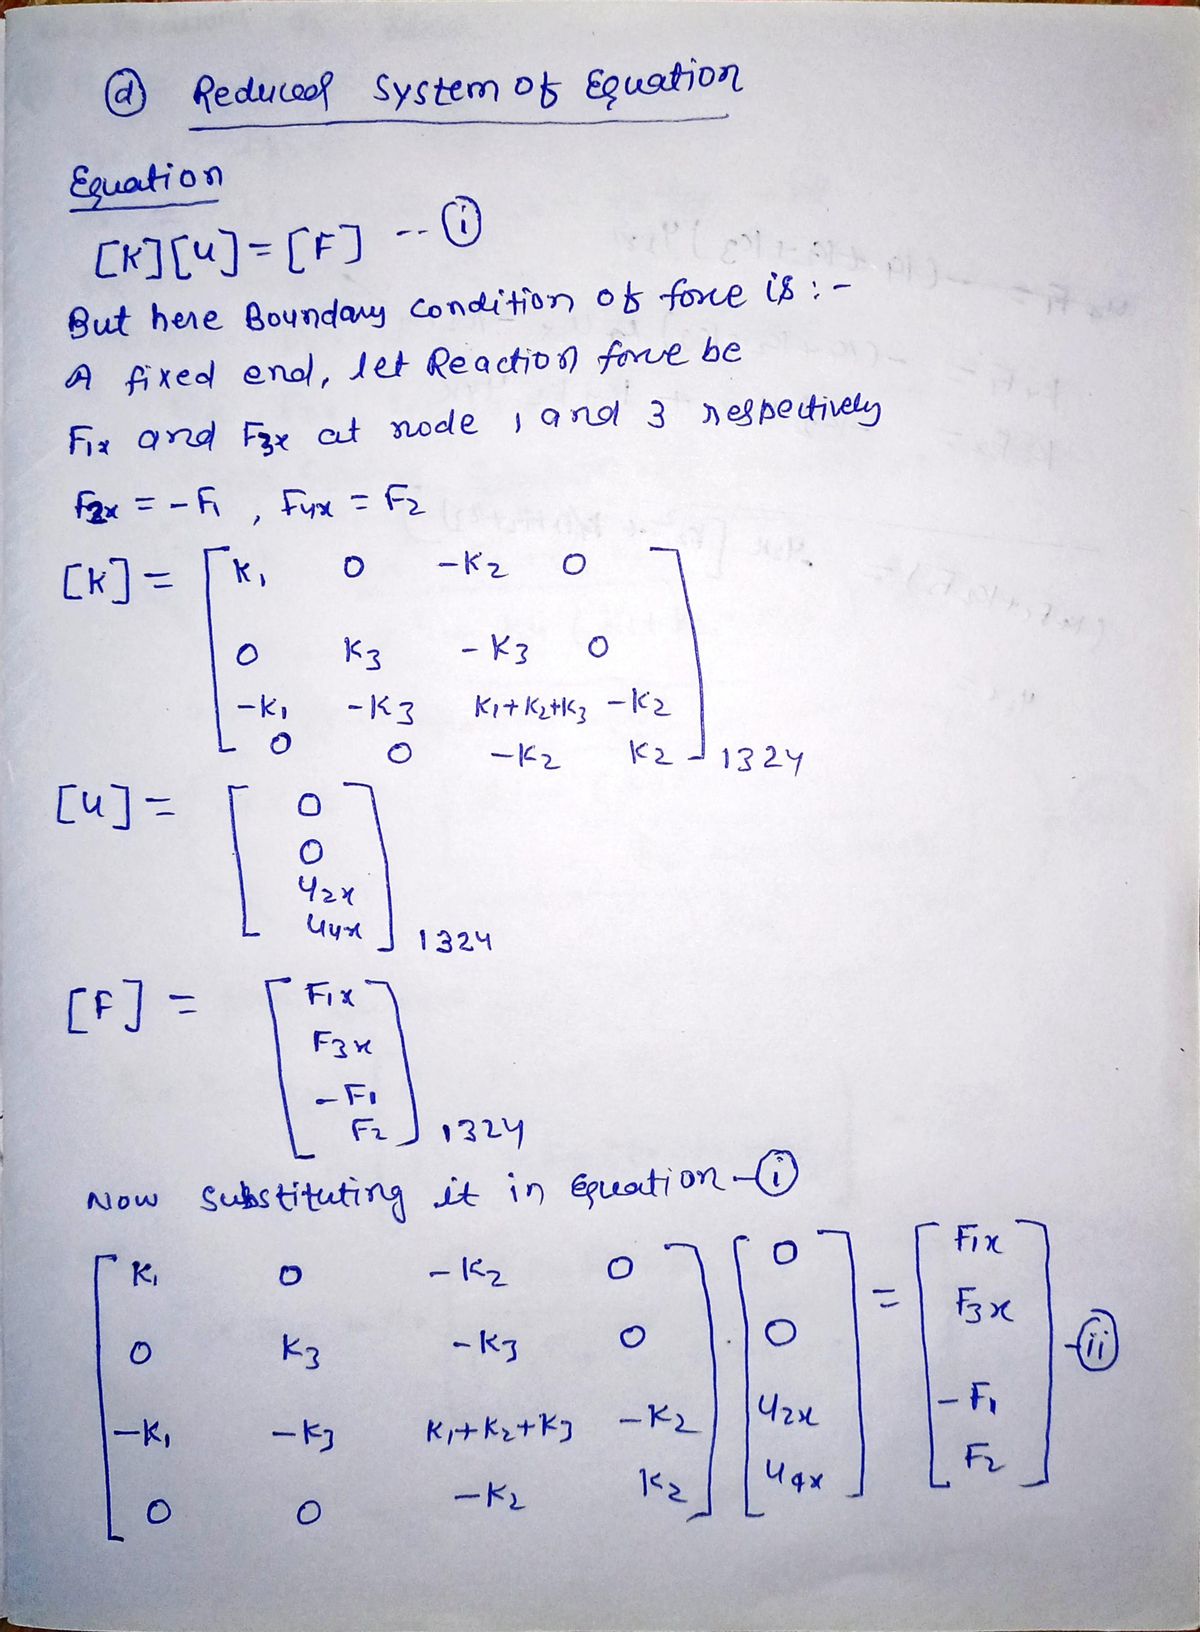 (d) Reduced System of Equation
Equation
[K][u] = [F] -- (i)
But here Boundary condition of force is :-
A fixed end, let Reaction force be
F1x and F3x at node 1 and 3 respectively
F2x = -F1 , F4x = F2
[K] = [ K1 0 -K2 0
0 K3 -K3 0
-K1 -K3 K1+K2+K3 -K2
0 0 -K2 K2 ] 1324
[u] = [ 0
0
u2x
u4x ] 1324
[F] = [ F1x
F3x
-F1
F2 ] 1324
Now substituting it in equation - (i)
[ K1 0 -K2 0 ] [ 0 ] = [ F1x ]
0 K3 -K3 0 . 0 F3x - (ii)
-K1 -K3 K1+K2+K3 -K2 u2x -F1
0 0 -K2 K2 u4x F2